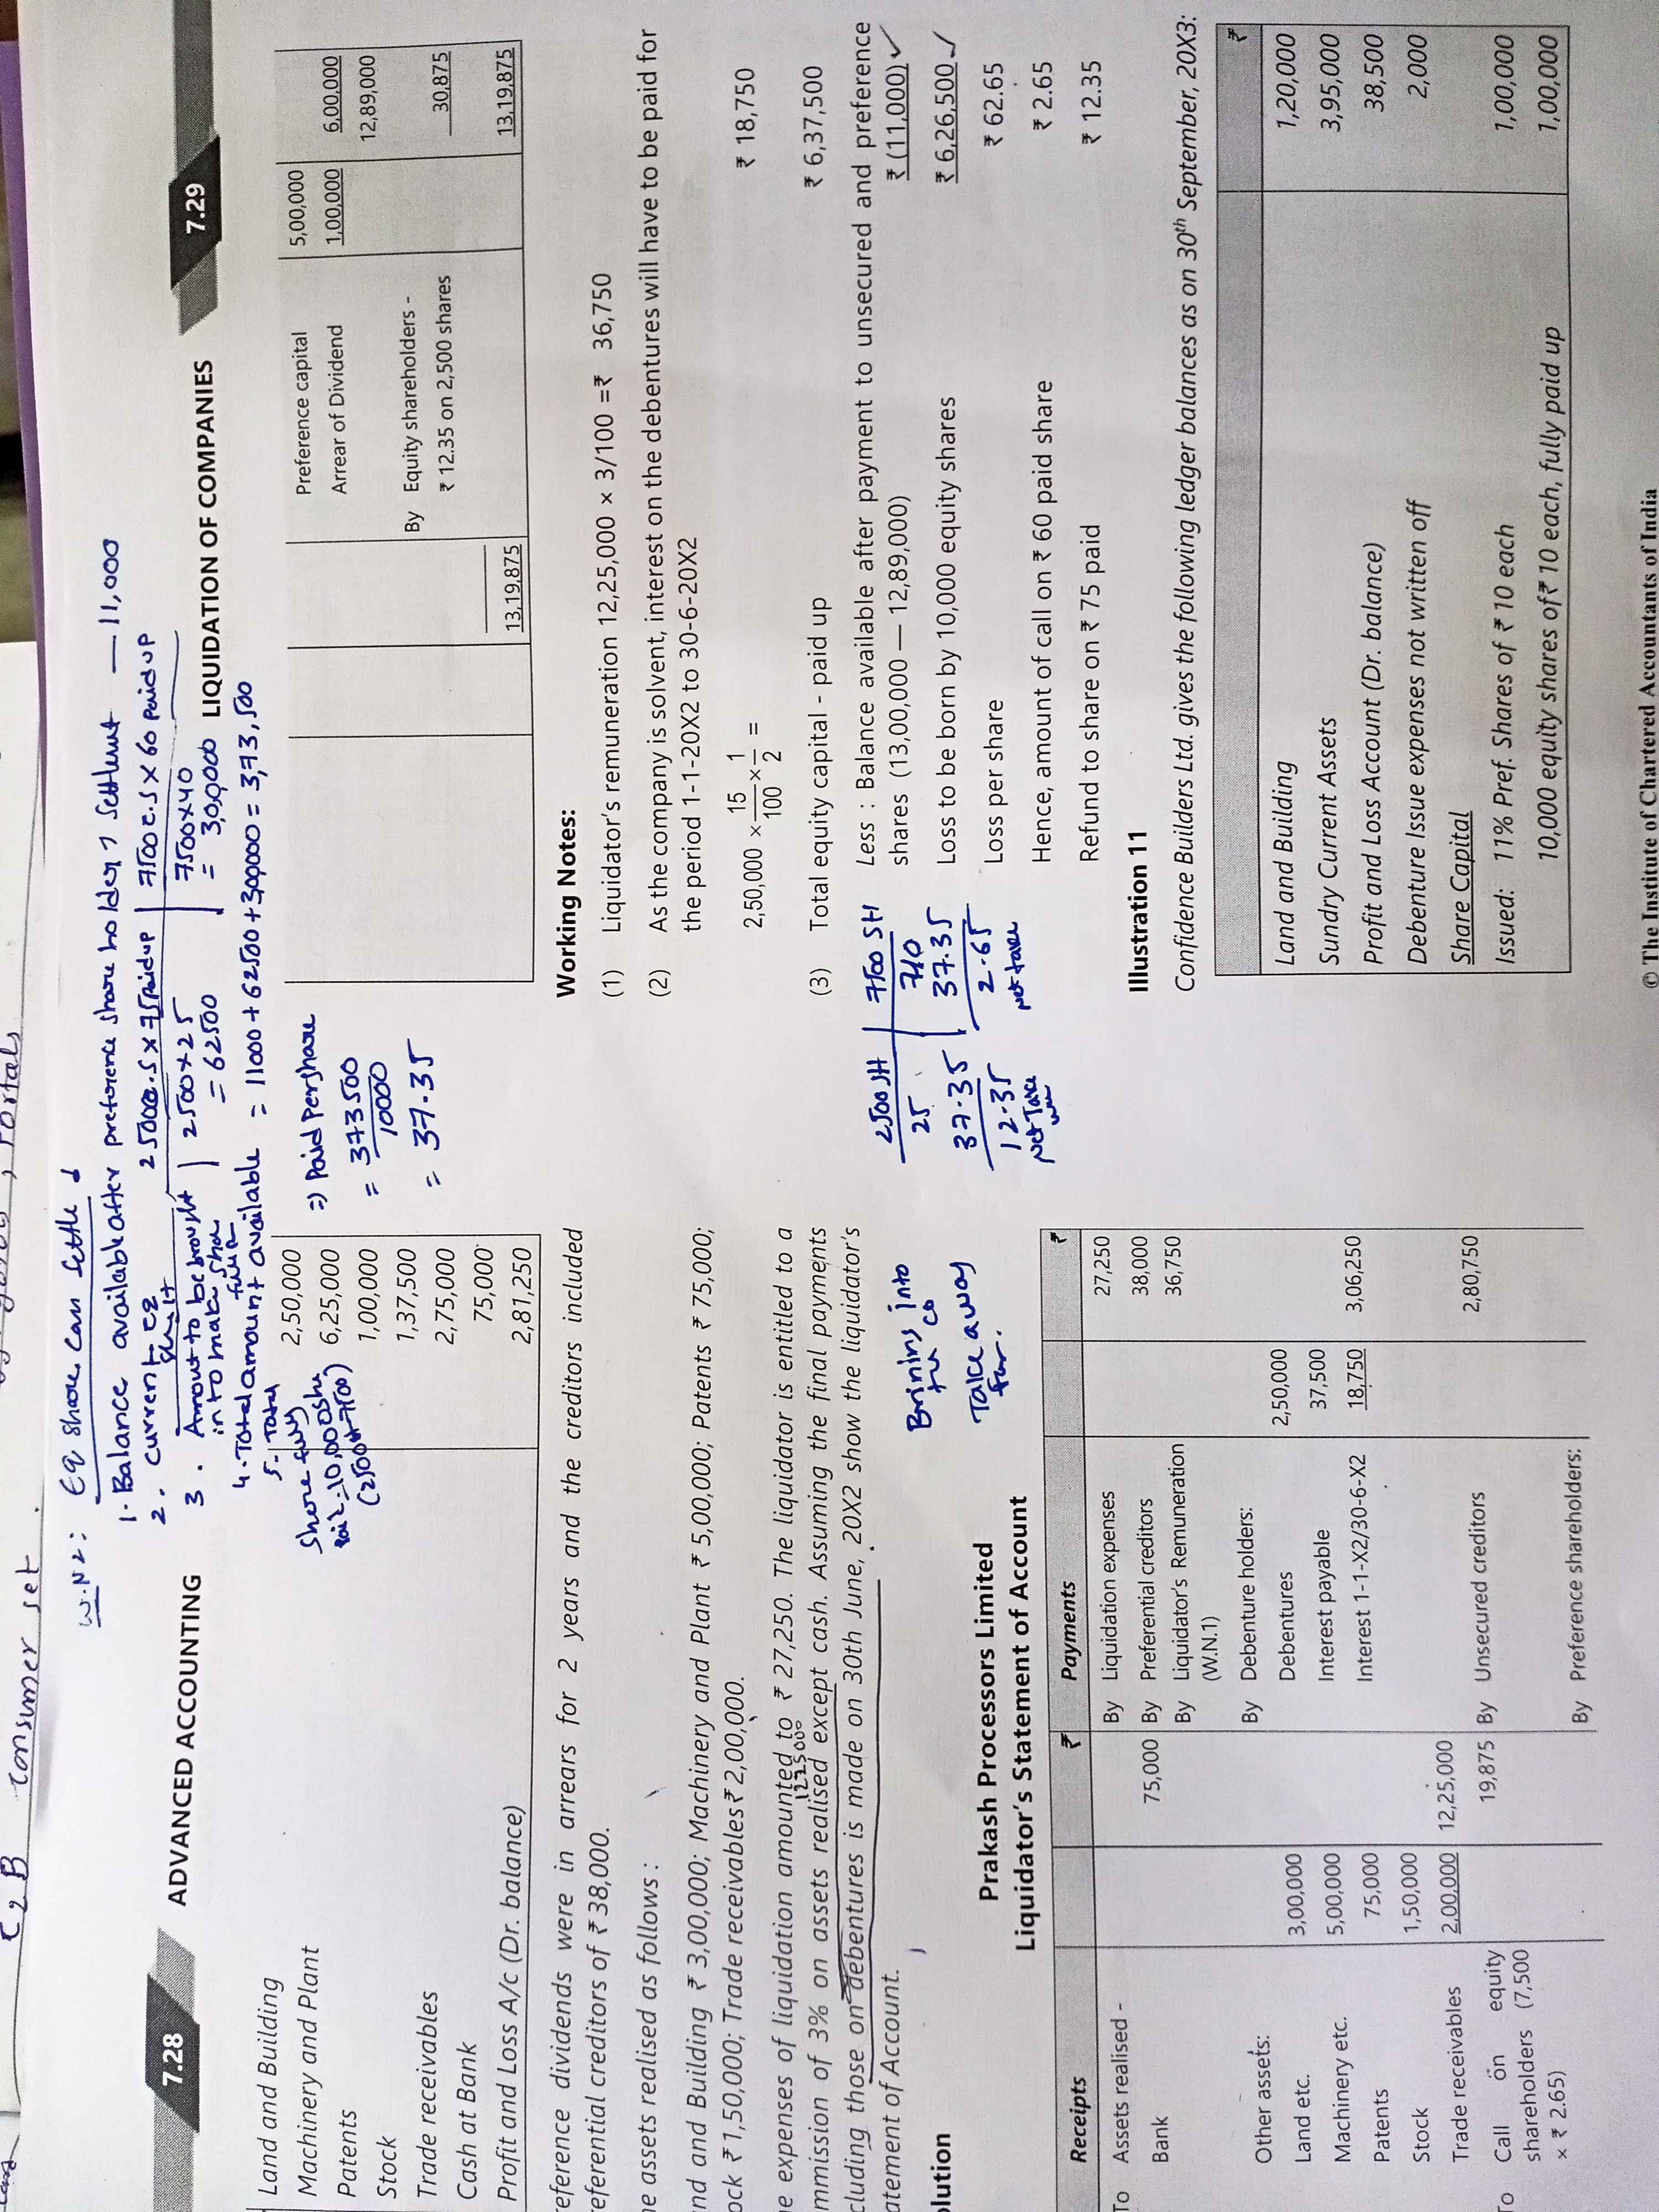 C2B consumer set
7.28 ADVANCED ACCOUNTING
Land and Building 2,50,000
Machinery and Plant 6,25,000
Patents 1,00,000
Stock 1,37,500
Trade receivables 2,75,000
Cash at Bank 75,000
Profit and Loss A/c (Dr. balance) 2,81,250
eference dividends were in arrears for 2 years and the creditors included
eferential creditors of ₹ 38,000.
e assets realised as follows :
nd and Building ₹ 3,00,000; Machinery and Plant ₹ 5,00,000; Patents ₹ 75,000;
ock ₹ 1,50,000; Trade receivables ₹ 2,00,000.
e expenses of liquidation amounted to ₹ 27,250. The liquidator is entitled to a
122500
mmission of 3% on assets realised except cash. Assuming the final payments
cluding those on debentures is made on 30th June, 20X2 show the liquidator's
atement of Account.
lution
Prakash Processors Limited
Liquidator's Statement of Account
Receipts ₹ Payments ₹
To Assets realised - By Liquidation expenses 27,250
Bank 75,000 By Preferential creditors 38,000
By Liquidator's Remuneration 36,750
(W.N.1)
Other assets: By Debenture holders:
Land etc. 3,00,000 Debentures 2,50,000
Machinery etc. 5,00,000 Interest payable 37,500
Patents 75,000 Interest 1-1-X2/30-6-X2 18,750 3,06,250
Stock 1,50,000
Trade receivables 2,00,000 12,25,000
To Call on equity 19,875 By Unsecured creditors 2,80,750
shareholders (7,500
× ₹ 2.65) By Preference shareholders:
W.N 2: Eq Share Can Settle d
1. Balance available after preference share holders settlment — 11,000
2. current ez 2500e.s x 75 paidup | 7500 e.s x 60 Paid up
3. Amount to be brought 2500x25 | 7500x40
into make share = 62500 | = 30,0000
4. Total amount available = 11000+62500+300000 = 3,73,500
5. Total
Share fully
Paid = 10,000
(2500+7500)
=) Paid Pershare
= 373500
10000
= 37.35
2500 SH | 7500 SH
25 | 40
37.35 | 37.35
12.35 | 2.65
Net Take
Net taken
Brining into
the co
Take away
LIQUIDATION OF COMPANIES 7.29
Preference capital 5,00,000
Arrear of Dividend 1,00,000 6,00,000
12,89,000
By Equity shareholders -
₹ 12.35 on 2,500 shares 30,875
13,19,875 13,19,875
Working Notes:
(1) Liquidator's remuneration 12,25,000 × 3/100 =₹ 36,750
(2) As the company is solvent, interest on the debentures will have to be paid for
the period 1-1-20X2 to 30-6-20X2
2,50,000 × 15/100 × 1/2 = ₹ 18,750
(3) Total equity capital - paid up ₹ 6,37,500
Less : Balance available after payment to unsecured and preference
shares (13,00,000 — 12,89,000) ₹ (11,000) ✓
Loss to be born by 10,000 equity shares ₹ 6,26,500 ✓
Loss per share ₹ 62.65
Hence, amount of call on ₹ 60 paid share ₹ 2.65
Refund to share on ₹ 75 paid ₹ 12.35
Illustration 11
Confidence Builders Ltd. gives the following ledger balances as on 30th September, 20X3:
₹
Land and Building 1,20,000
Sundry Current Assets 3,95,000
Profit and Loss Account (Dr. balance) 38,500
Debenture Issue expenses not written off 2,000
Share Capital
Issued: 11% Pref. Shares of ₹ 10 each 1,00,000
10,000 equity shares of ₹ 10 each, fully paid up 1,00,000
© The Institute of Chartered Accountants of India